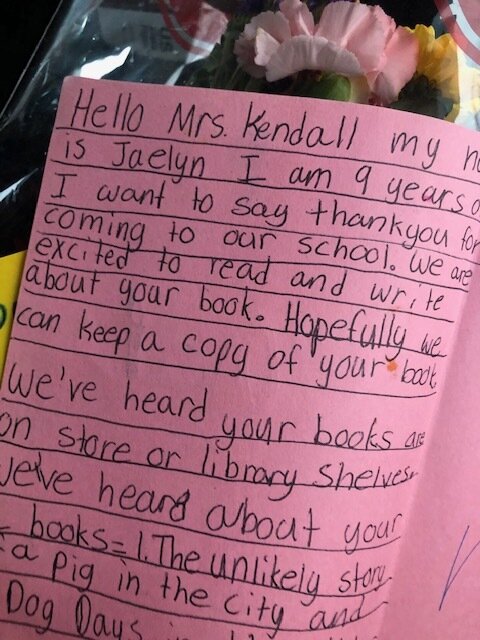 Hello Mrs. Kendall my
is Jaelyn I am 9 years
I want to say thankyou for
coming to our school. We are
excited to read and write
about your book. Hopefully we
can keep a copy of your book
We've heard your books are
on store or library shelves.
We've heard about your
books=1. The unlikely story
a pig in the city and
Dog Days